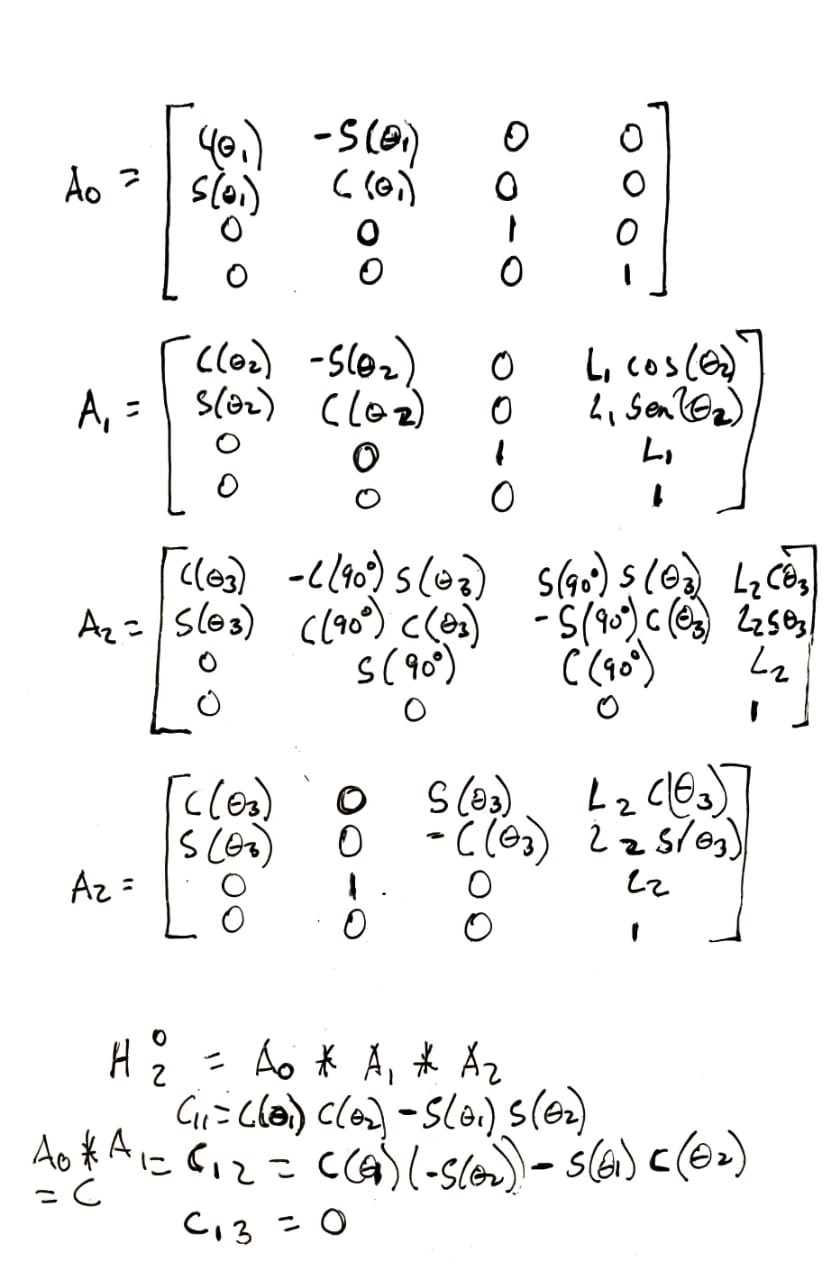 C(θ₁) -S(θ₁) 0 0
A₀ = S(θ₁) C(θ₁) 0 0
0 0 1 0
0 0 0 1
C(θ₂) -S(θ₂) 0 L₁ cos(θ₂)
A₁ = S(θ₂) C(θ₂) 0 L₁ Sen(θ₂)
0 0 1 L₁
0 0 0 1
C(θ₃) -C(90°) S(θ₃) S(90°) S(θ₃) L₂ Cθ₃
A₂ = S(θ₃) C(90°) C(θ₃) -S(90°) C(θ₃) L₂Sθ₃
0 S(90°) C(90°) L₂
0 0 0 1
C(θ₃) 0 S(θ₃) L₂ C(θ₃)
S(θ₃) 0 -C(θ₃) L₂ S(θ₃)
A₂ = 0 1 0 L₂
0 0 0 1
H⁰₂ = A₀ * A₁ * A₂
C₁₁ = C(θ₁) C(θ₂) - S(θ₁) S(θ₂)
A₀ * A₁ = C₁₂ = C(θ₁)(-S(θ₂)) - S(θ₁) C(θ₂)
= C
C₁₃ = 0